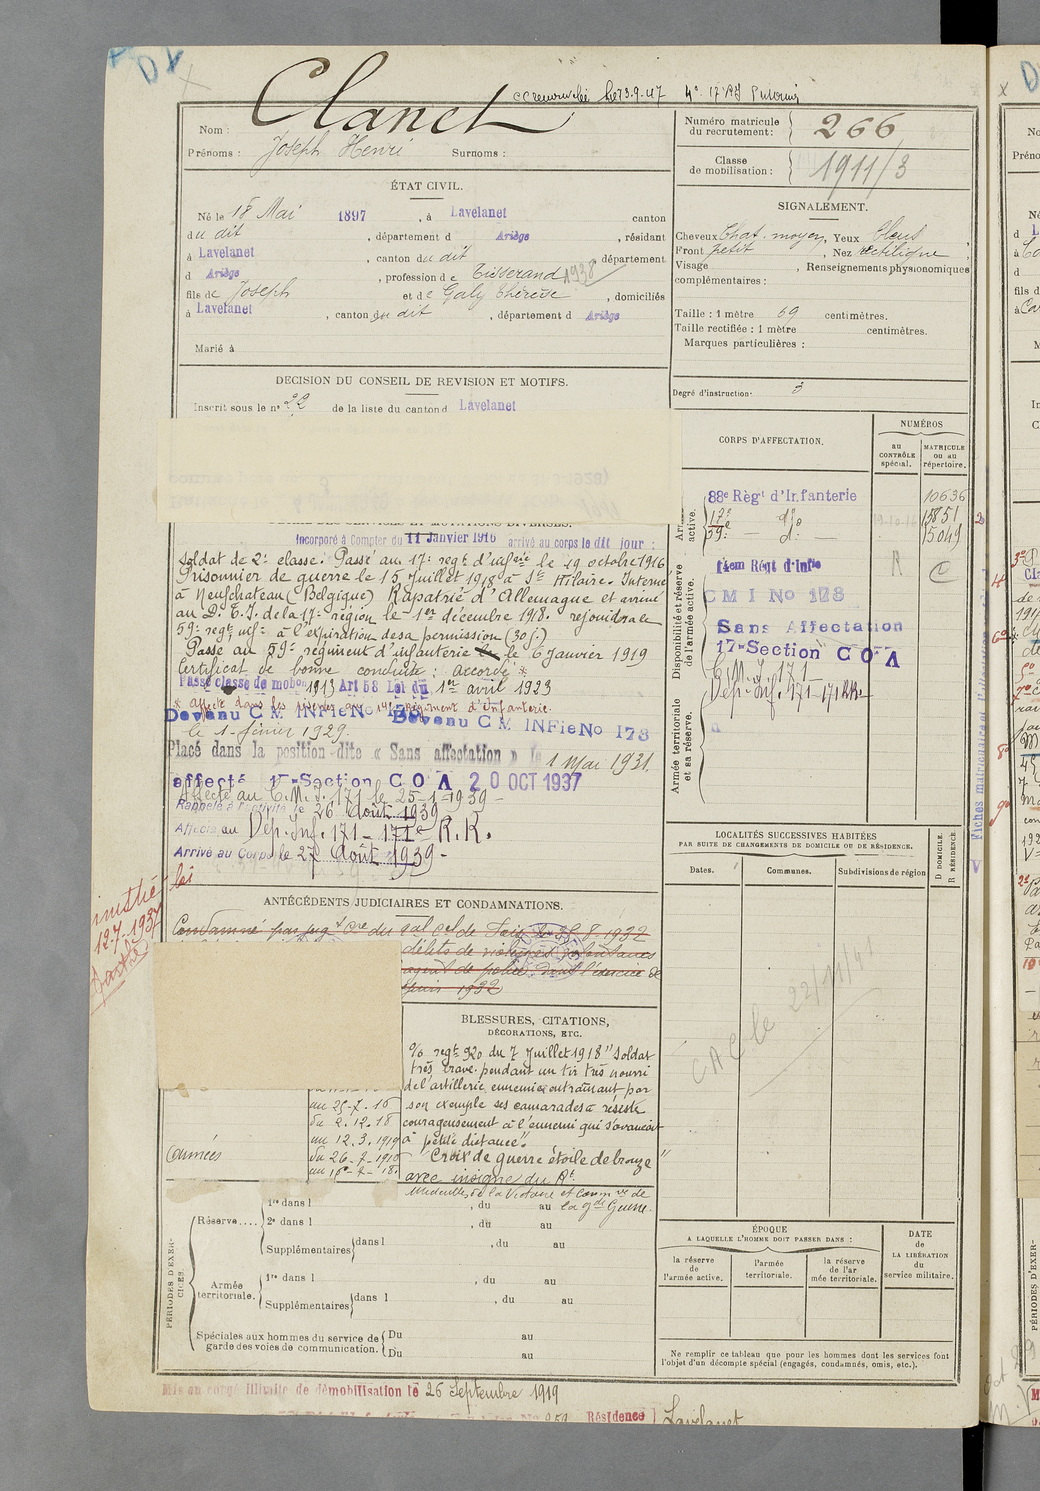 Clanet
Nom :
Prénoms : Joseph Henri Surnoms :
Numéro matricule du recrutement : 266
Classe de mobilisation : 1911/3
ÉTAT CIVIL.
Né le 18 Mai 1897, à Lavelanet canton
du dit, département d Ariège, résidant
à Lavelanet, canton du dit, département
d Ariège, profession de Tisserand 1938
fils de Joseph et de Galy Thérèse, domiciliés
à Lavelanet, canton du dit, département d Ariège
Marié à
SIGNALEMENT.
Cheveux Chat. moyen, Yeux bleus,
Front petit, Nez rectiligne,
Visage, Renseignements physionomiques
complémentaires :
Taille : 1 mètre 69 centimètres.
Taille rectifiée : 1 mètre centimètres.
Marques particulières :
Degré d'instruction. 3
DECISION DU CONSEIL DE REVISION ET MOTIFS.
Inscrit sous le n° 22 de la liste du canton d Lavelanet
Incorporé à Compter du 11 Janvier 1916 arrivé au corps le dit jour :
Soldat de 2e classe. Passé au 17e regt d'infie le 19 octobre 1916
Prisonnier de guerre le 15 Juillet 1918 à St Hilaire. Interné
à Neufchateau (Belgique) Rapatrié d'Allemagne et arrivé
au D. T. I. de la 17e région le 1er décembre 1918. rejoindra le
59e regt inf. à l'expiration de sa permission (30 j.)
Passé au 59e régiment d'infanterie le 6 Janvier 1919
Certificat de bonne conduite : accordé *
Passé classe de mobon 1913 Art 58 Loi du 1er avril 1923
* Affecté dans les réserves au 14e Régiment d'Infanterie.
Devenu C M INFie No 178 Devenu C M INFie No 178
le 1 février 1929.
Placé dans la position dite « Sans affectation » le 1 Mai 1931.
affecté 17e Section C O A 20 OCT 1937
Affecté au C.M.I. 171 le 25-1-1939-
Rappelé à l'activité le 26 Août 1939
Affecté au Dép. Inf. 171 - 171e R.R.
Arrivé au Corps le 27 Août 1939-
CORPS D'AFFECTATION.
NUMÉROS
au CONTRÔLE spécial.
MATRICULE ou au répertoire.
Armée active.
88e Régt d'Infanterie 10636
17e do 15851
59e — d° — 15049
Disponibilité et réserve de l'armée active.
14em Régt d'Infie
C M I No 178
Sans Affectation
17e Section C O A
C. M. I. 171
Dép. Inf. 171-171 RR
Armée territoriale et sa réserve.
LOCALITÉS SUCCESSIVES HABITÉES
PAR SUITE DE CHANGEMENTS DE DOMICILE OU DE RÉSIDENCE.
Dates. Communes. Subdivisions de région
D DOMICILE. R RÉSIDENCE
CAC le 22/11/41
ANTÉCÉDENTS JUDICIAIRES ET CONDAMNATIONS.
Condamné par jugt Cre du
délits de violences volontaires
agent de police dans l'exercice de
juin 1932
amnistié
loi
12-7-1937
BLESSURES, CITATIONS,
DÉCORATIONS, ETC.
% regt 920 du 7 Juillet 1918 "Soldat
très brave pendant un tir très nourri
de l'artillerie ennemie entraînant par
son exemple ses camarades a résisté
courageusement à l'ennemi qui s'avançait
à petite distance".
Croix de guerre étoile de bronze "
avec insigne du Rt
Médailles de la Victoire et Commve de
la gde Guerre.
au 25-7-16
du 2.12.18
au 12.3.1919
du 26-7-1916
(armées
PÉRIODES D'EXERCICES.
Réserve....
1re dans l, du au
2e dans l, du au
Supplémentaires dans l, du au
Armée territoriale.
1re dans l, du au
Supplémentaires dans l, du au
Spéciales aux hommes du service de garde des voies de communication. Du au
Du au
ÉPOQUE
A LAQUELLE L'HOMME DOIT PASSER DANS :
la réserve de l'armée active.
l'armée territoriale.
la réserve de l'armée territoriale.
DATE de LA LIBÉRATION du service militaire.
Ne remplir ce tableau que pour les hommes dont les services font
l'objet d'un décompte spécial (engagés, condamnés, omis, etc.).
Mis en congé Illimité de démobilisation le 26 Septembre 1919
Résidence Lavelanet